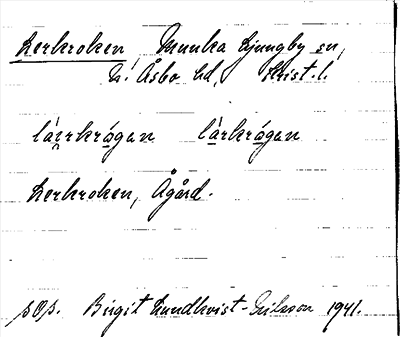 Lerkroken Munka Ljungby sn,
N. Åsbo hd, Krist. l.
lä́rkrógan lárkrógan
Lerkroken, Ågård.
sOs. Birgit Lundkvist-Nilsson 1941.